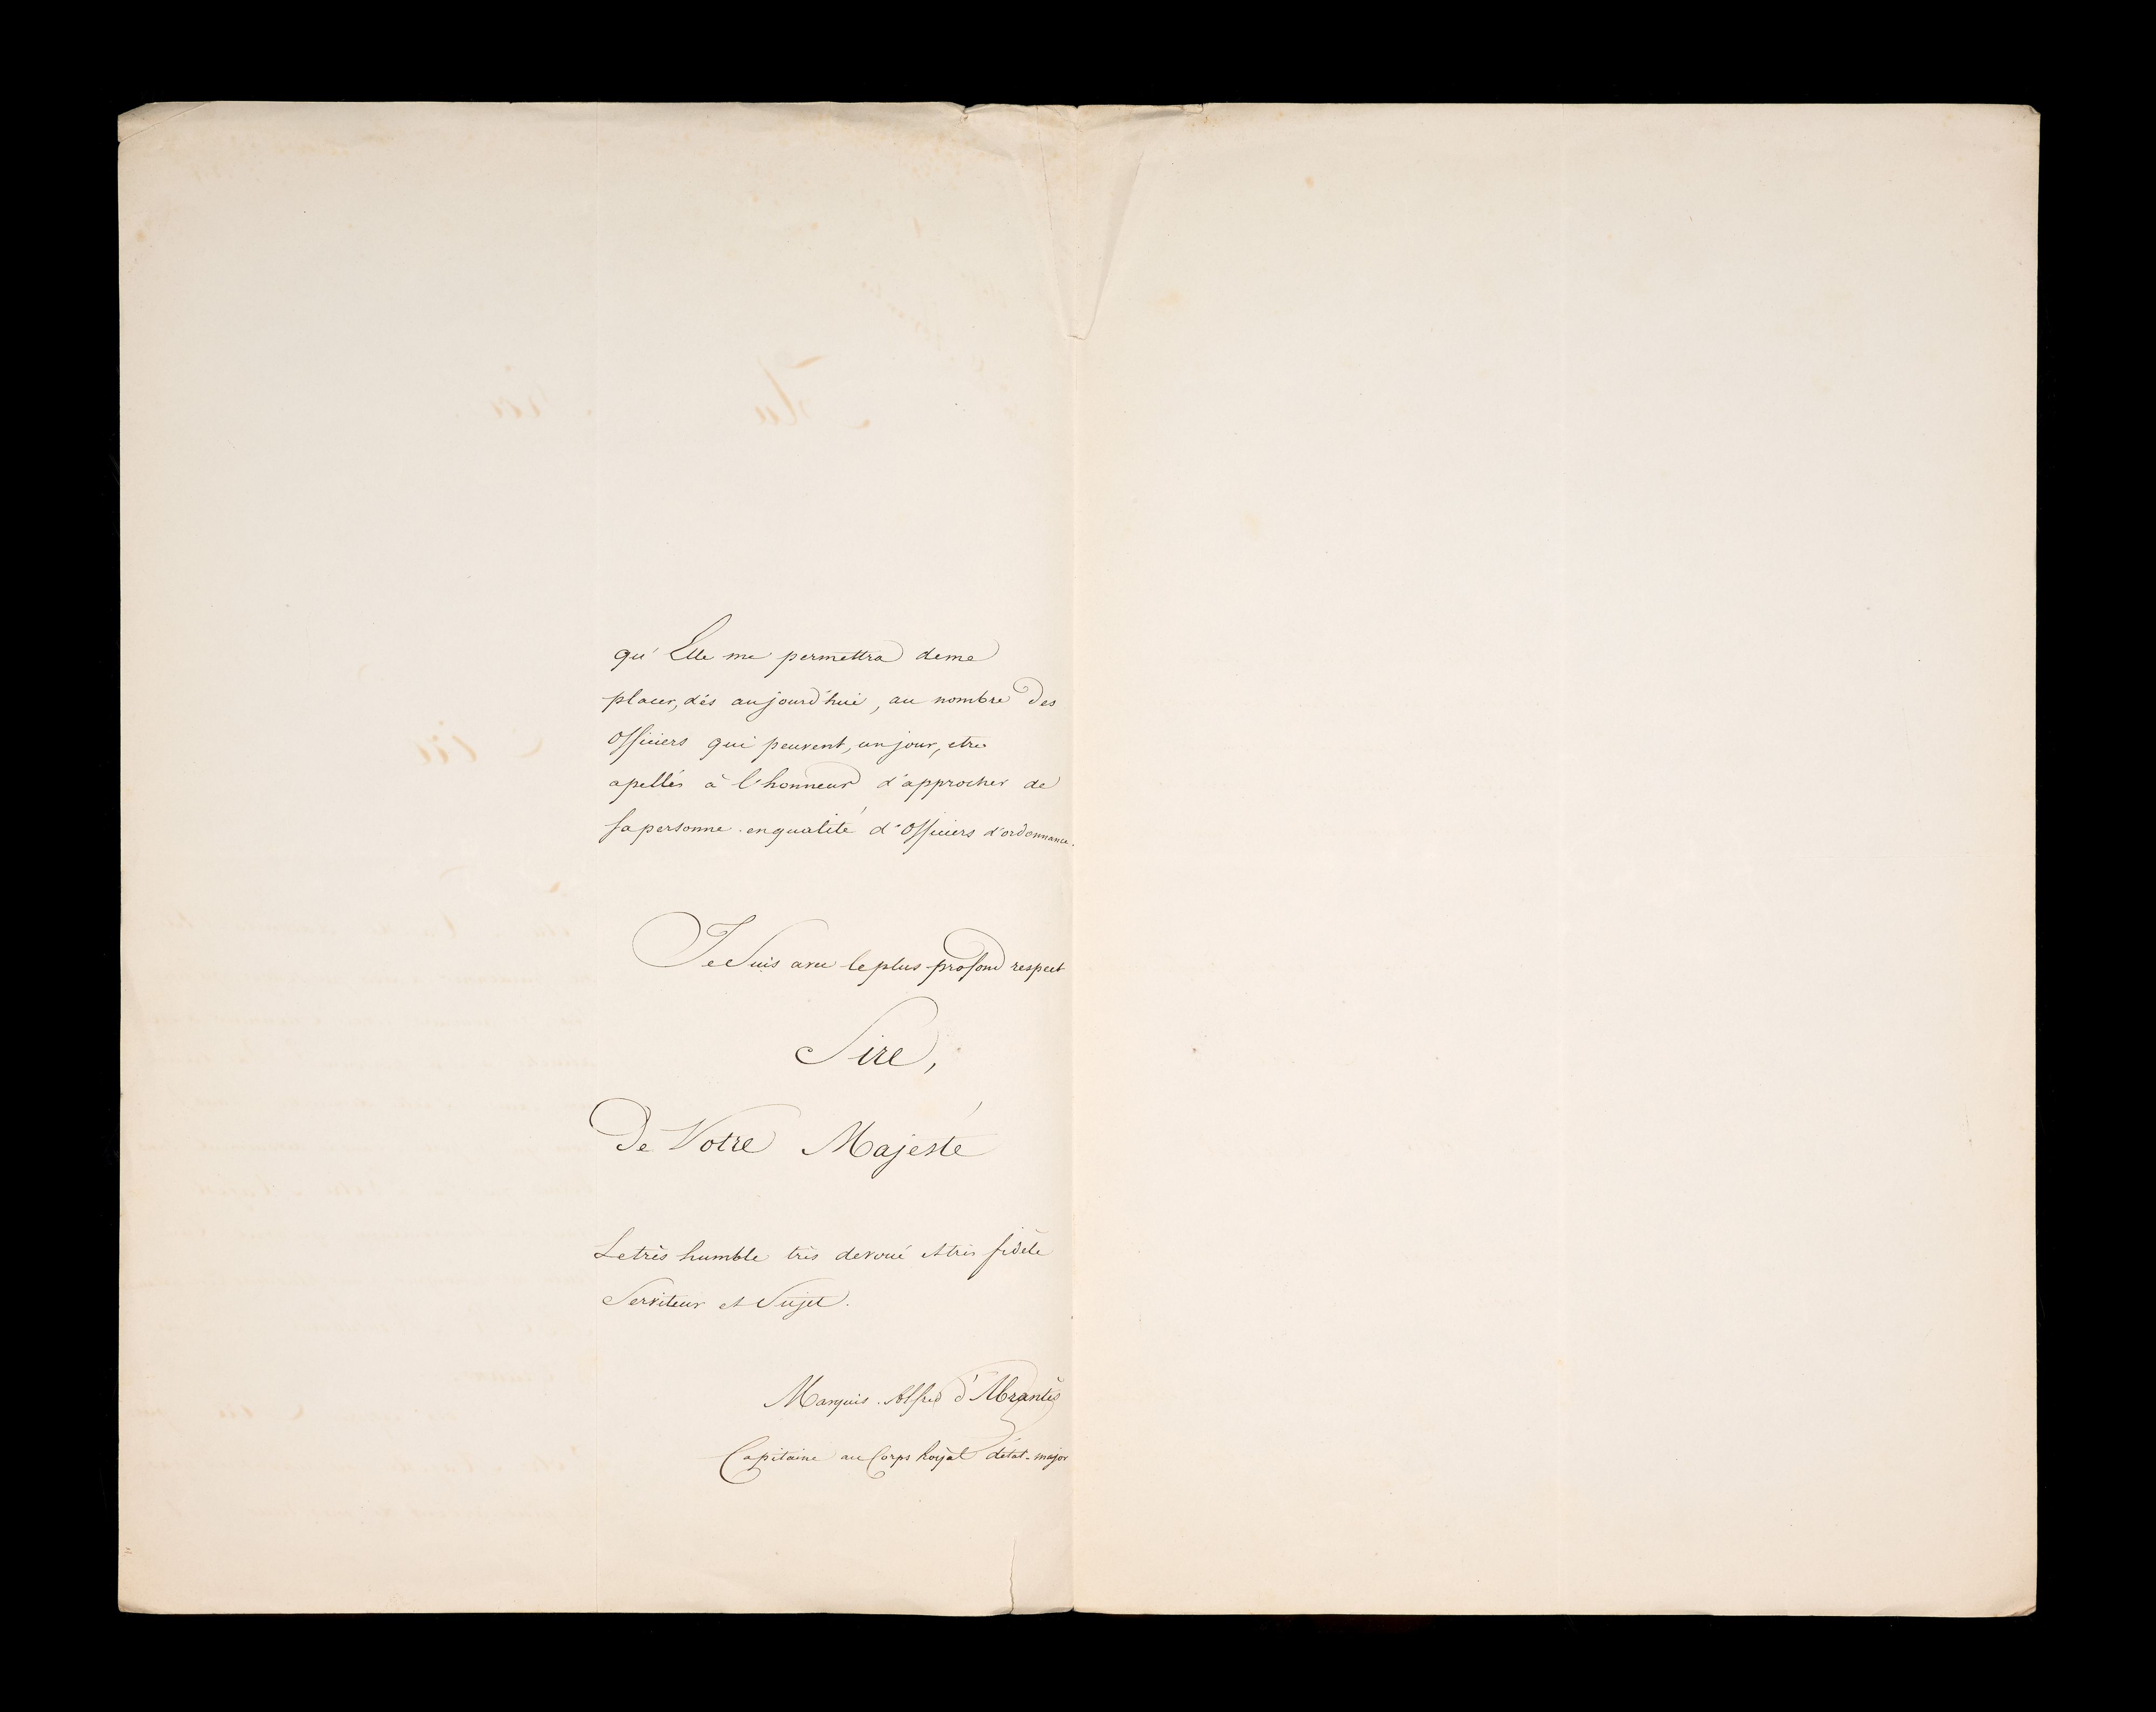 qu'Elle me permettra de me
placer, dès aujourd'hui, au nombre des
Officiers qui peuvent, un jour, etre
apellés à l'honneur d'approcher de
sa personne en qualité d'Officiers d'ordonnance.
Je Suis avec le plus profond respect
Sire,
De Votre Majesté
Le très humble très devoué et très fidèle
Serviteur et Sujet.
Marquis Alfred d'Abrantès
Capitaine au Corps Royal d'état-major